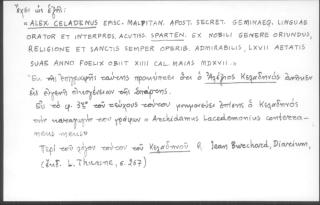 ἔχει ὡς ἑξῆς:
« ALEX. CELADENUS EPISC. MALPITAN. APOST. SECRET. GEMINAEQ. LINGUAE
ORATOR ET INTERPRES, ACUTISS. SPARTEN. EX NOBILI GENERE ORIUNDUS,
RELIGIONE ET SANCTIS SEMPER OPERIB. ADMIRABILIS, LXVII AETATIS
SUAE ANNO FOELIX OBIIT XIIII CAL. MAIAS MDXVII. »
Ἐκ τῆς ἐπιγραφῆς ταύτης προκύπτει ὅτι ὁ Ἀλέξιος Κελαδηνός
εἰς εὐγενῆ οἰκογένειαν τῆς Σπάρτης.
Εἰς τὸ φ. 38 τοῦ τεύχους τούτου μνημονεύει ἐπίσης ὁ Κελαδηνὸς
τὴν καταγωγήν του γράφων « Archidamus Lacedemonius conterra-
neus meus »
Περὶ τοῦ τούτου τοῦ Κελαδηνοῦ Jean Burchard, Diarium,
(ἔκδ. L. Thuasne, σ. 267)